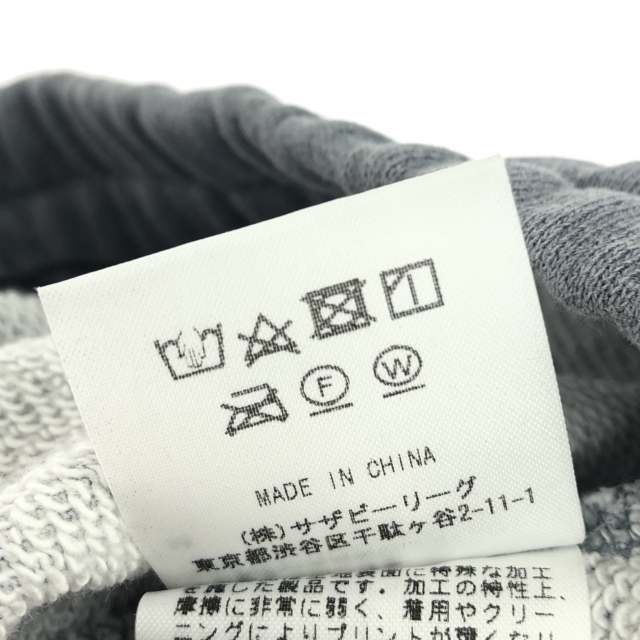 F W
MADE IN CHINA
(株)サザビーリーグ
東京都渋谷区千駄ヶ谷2-11-1
に特殊な加工
を施した製品です.加工の特性上,
摩擦に非常に弱く、着用やクリー
ニングによりプリントが薄くなり